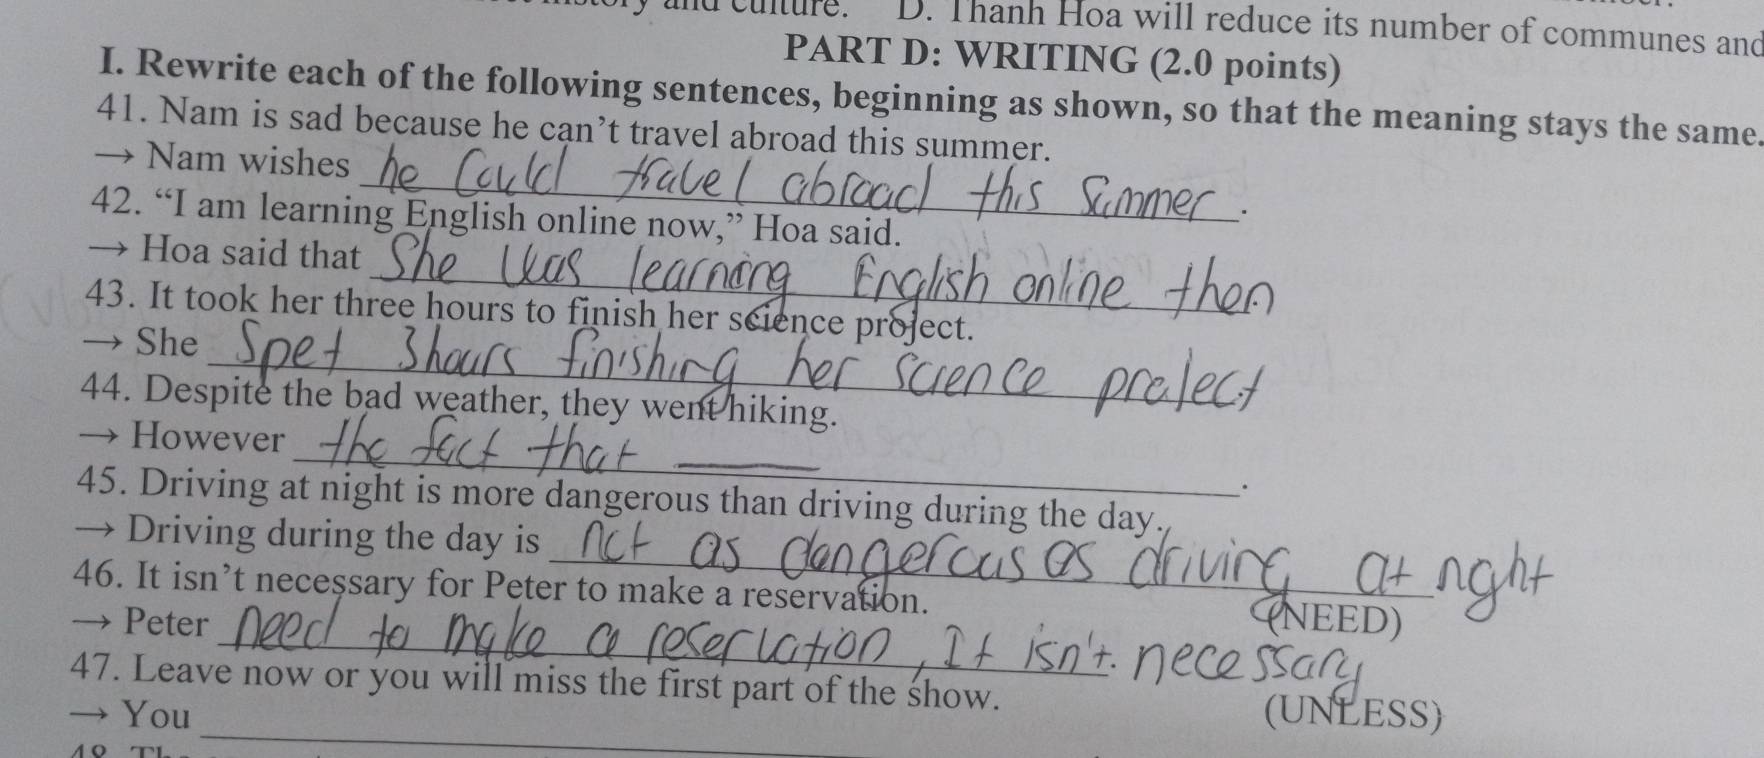 ory and culture. D. Thanh Hoa will reduce its number of communes and
PART D: WRITING (2.0 points)
I. Rewrite each of the following sentences, beginning as shown, so that the meaning stays the same.
41. Nam is sad because he can't travel abroad this summer.
→ Nam wishes he Could travel abroad this Summer.
42. “I am learning English online now,” Hoa said.
→ Hoa said that She was learning English online then
43. It took her three hours to finish her science project.
→ She Spet 3 hours finishing her science project
44. Despite the bad weather, they went hiking.
→ However the fact that ______.
45. Driving at night is more dangerous than driving during the day.
→ Driving during the day is not as dangerous as driving at nght
46. It isn't necessary for Peter to make a reservation. (NEED)
→ Peter need to make a reservation, It isn't. necessary
47. Leave now or you will miss the first part of the show. (UNLESS)
→ You